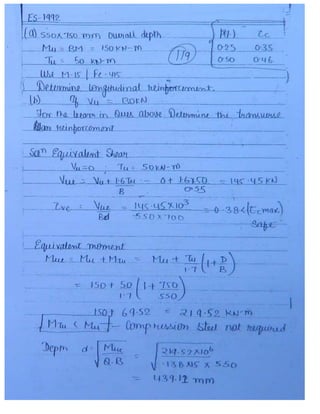 ES-1992
(a) 550x750 mm overall depth
Mu = BM = 150 KN-m
Tu = 50 KN-m
Use M-15 / Fe-415
Determine longitudinal reinforcement.
179
Pt% τc
0.25 0.35
0.50 0.46
(b) If Vu = 80KN
For the beam in Ques above Determine the transverse
reinforcement
Soln Equivalent Shear
Vu=0 , Tu= 50KN-m
Vue = Vu + 1.6Tu/B = 0 + 1.6x50/0.55 = 145.45KN
τve = Vue/Bd = 145.45x10³/550x700 = 0.38 < (τc max)
Safe
Equivalent moment
Mue = Mu + MTu = Mu + Tu/1.7 (1+D/B)
= 150 + 50/1.7 (1+750/550)
150 + 69.52 = 219.52 KN-m
MTu < Mu - Compression Steel not required
Depth d = √Mue/Q.B = √219.52x10⁶/.138x15 x 550
= 439.12 mm